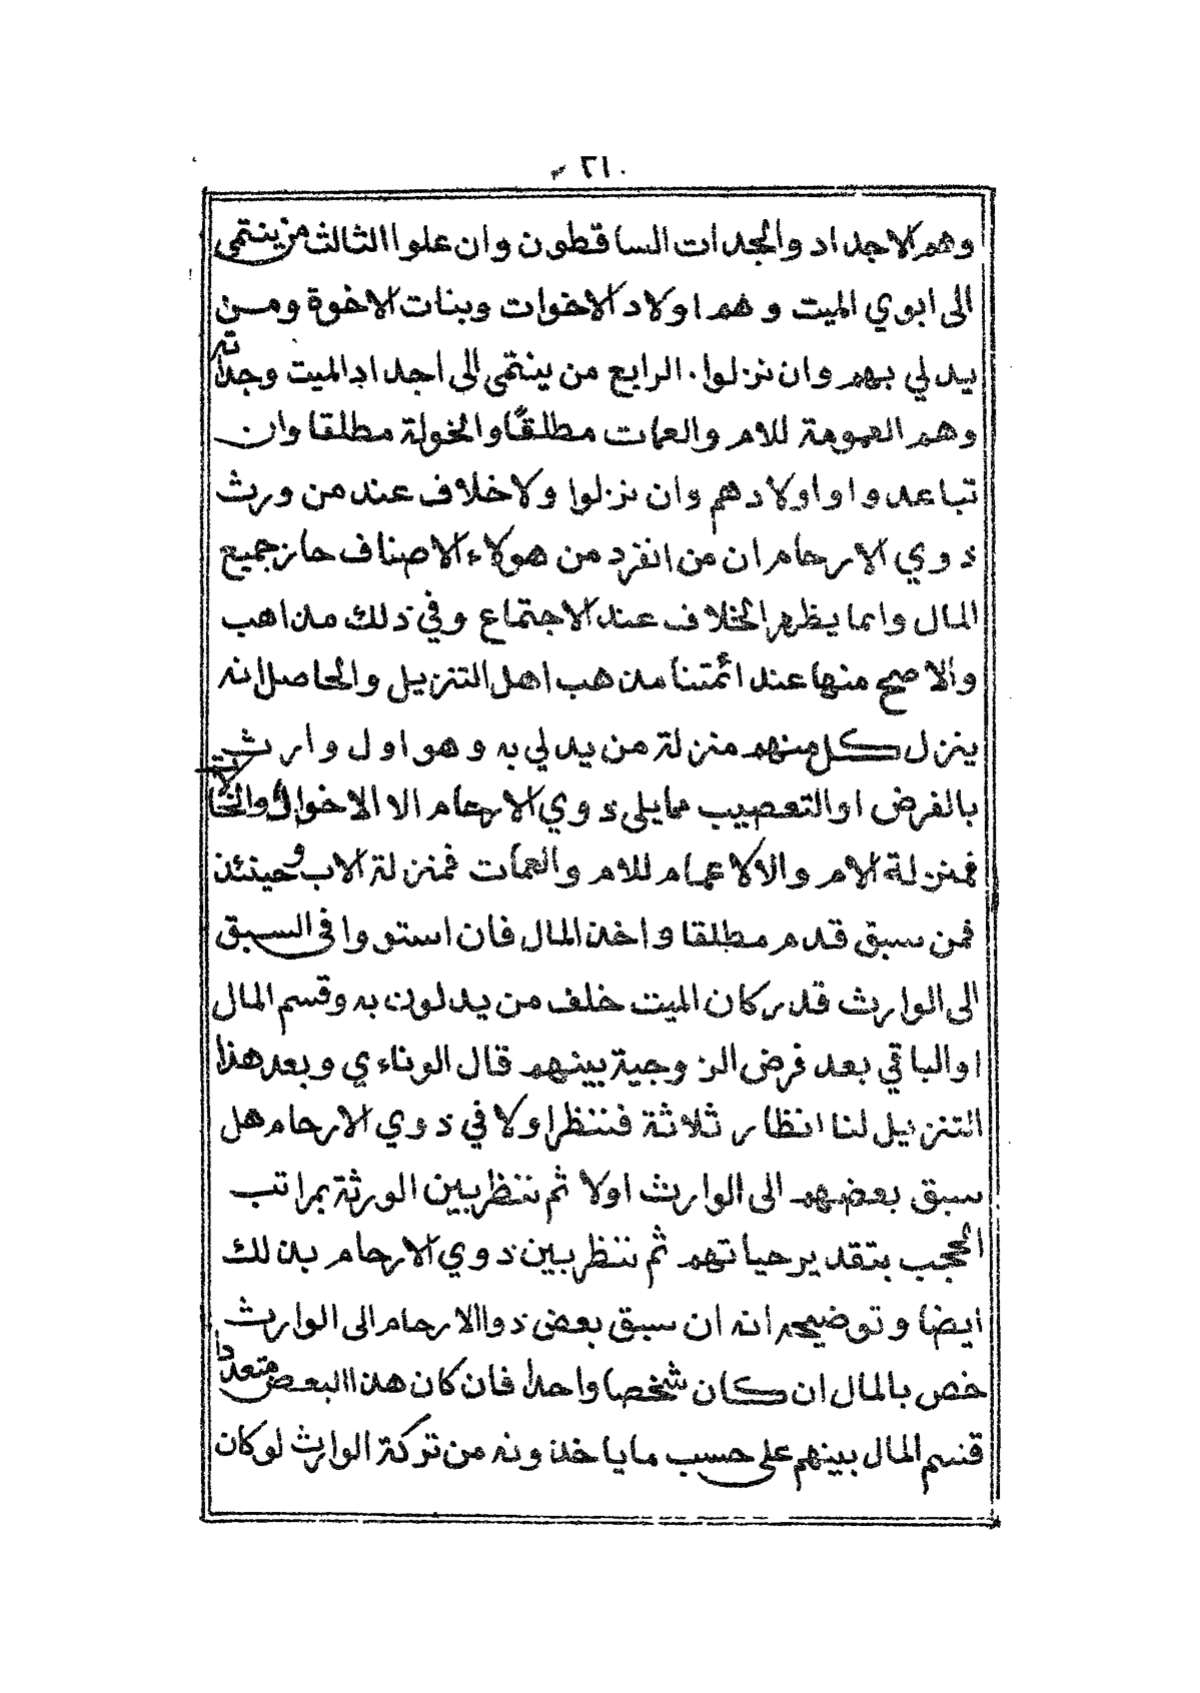 ٢١٠
وهم الاجداد والجدات الساقطون وان علوا الثالث من ينتمى
الى ابوي الميت وهم اولاد الاخوات وبنات الاخوة ومن
يدلي بهم وان نزلوا. الرابع من ينتمى الى اجداد الميت وجداته
وهم العمومة للام والعمات مطلقًا والخولة مطلقا وان
تباعدوا واولادهم وان نزلوا ولاخلاف عند من ورث
ذوي الارحام ان من انفرد من هولاء الاصناف حاز جميع
المال وانما يظهر الخلاف عند الاجتماع وفي ذلك مذاهب
والاصح منها عند ائمتنا مذهب اهل التنزيل والحاصل انه
ينزل كل منهم منزلة من يدلي به وهو اول وارث
بالفرض او التعصيب مما يلى ذوي الارحام الا الاخوال والخالات
فمنزلة الام والا الاعمام للام والعمات فمنزلة الاب وحينئذ
فمن سبق قدم مطلقا واخذ المال فان استووا فى السبق
الى الوارث قدر كان الميت خلف من يدلون به وقسم المال
او الباقي بعد فرض الزوجية بينهم قال الوناءي وبعد هذا
التنزيل لنا انظار ثلاثة فننظر اولا في ذوي الارحام هل
سبق بعضهم الى الوارث اولا ثم ننظر بين الورثة بمراتب
الحجب بتقدير حياتهم ثم ننظر بين ذوي الارحام بذلك
ايضا وتوضيحه انه ان سبق بعض ذوا الارحام الى الوارث
خص بالمال ان كان شخصا واحدا فان كان هذا البعض متعددا
قسم المال بينهم على حسب ماياخذونه من تركة الوارث لوكان